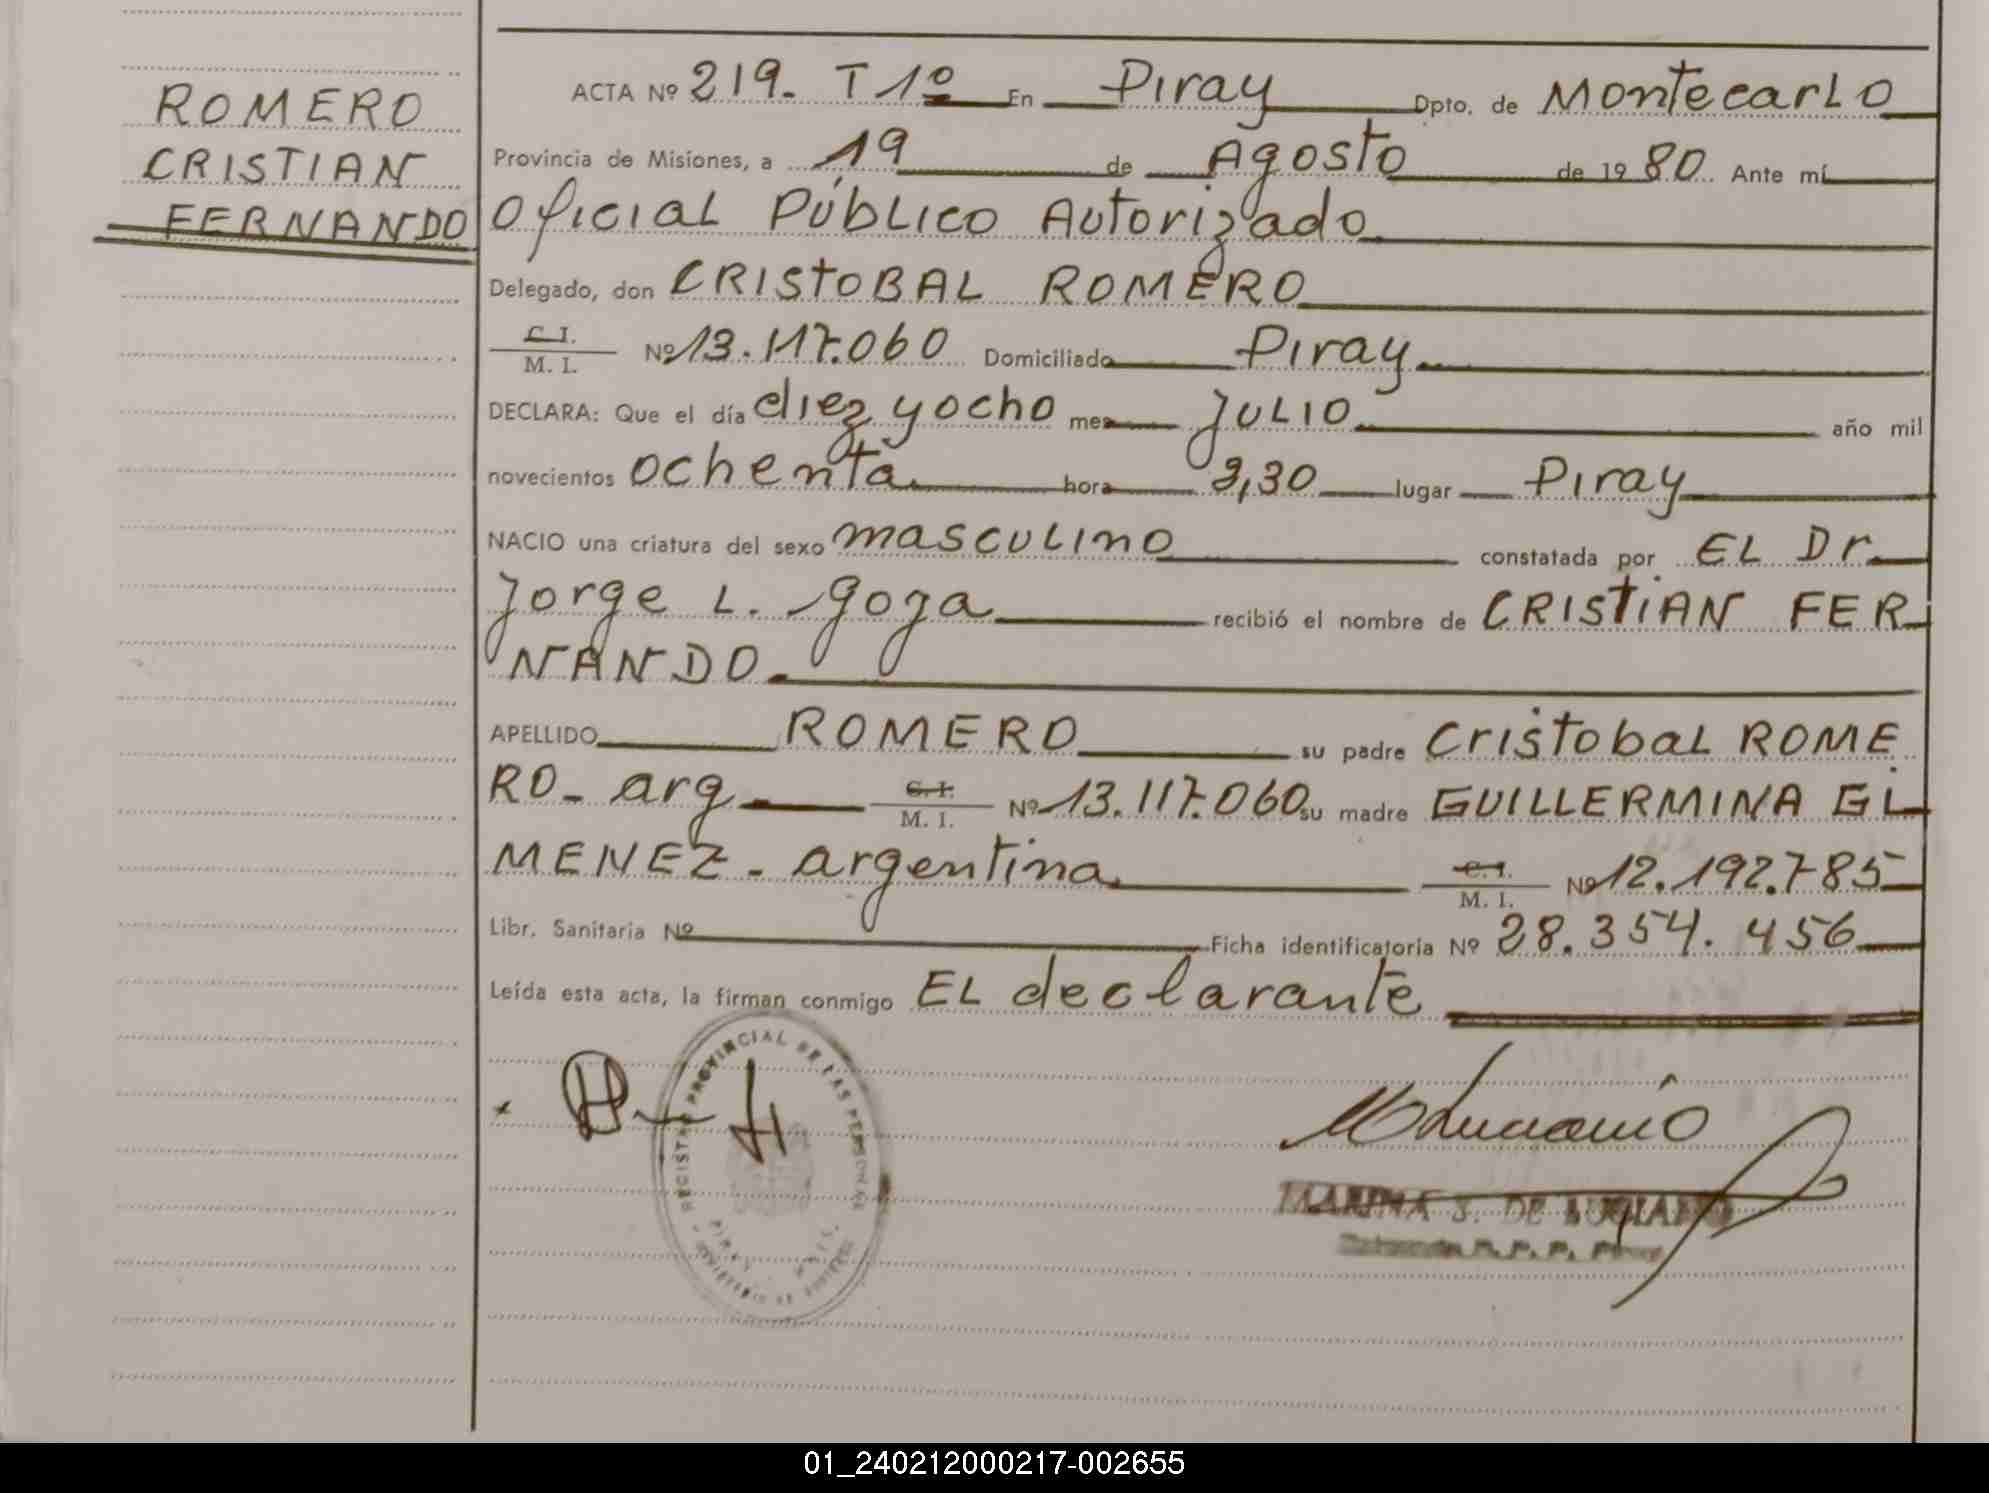 ROMERO
CRISTIAN
FERNANDO
ACTA Nº 219. T 1º En Piray Dpto. de Montecarlo
Provincia de Misiones, a 19 de Agosto de 1980. Ante mí
Oficial Público Autorizado
Delegado, don CRISTOBAL ROMERO
C. I.
M. I. Nº 13.117.060 Domiciliado Piray
DECLARA: Que el día diez y ocho mes Julio año mil
novecientos ochenta hora 3,30 lugar Piray
NACIO una criatura del sexo masculino constatada por EL Dr.
Jorge L. recibió el nombre de CRISTIAN FER
NANDO.
APELLIDO ROMERO su padre Cristobal ROME
RO - arg C. I. M. I. Nº 13.117.060 su madre GUILLERMINA GI
MENEZ - argentina C. I. M. I. Nº 12.192.785
Libr. Sanitaria Nº Ficha identificatoria Nº 28.354.456
Leída esta acta, la firman conmigo EL declarante
REGISTRO PROVINCIAL DE LAS PERSONAS
MARINA J. DE LUCIANO
01_240212000217-002655